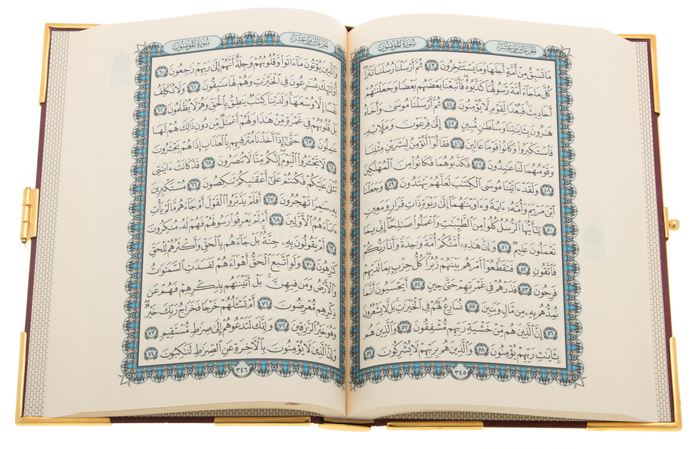 سُورَةُ المُؤْمِنُونَ الجُزْءُ الثَّامِنَ عَشَرَ
مَا تَسْبِقُ مِنْ أُمَّةٍ أَجَلَهَا وَمَا يَسْتَـْٔخِرُونَ ٤٣ ثُمَّ أَرْسَلْنَا رُسُلَنَا تَتْرَا
كُلَّ مَا جَآءَ أُمَّةً رَّسُولُهَا كَذَّبُوهُ فَأَتْبَعْنَا بَعْضَهُم بَعْضًا وَجَعَلْنَٰهُمْ
أَحَادِيثَ فَبُعْدًا لِّقَوْمٍ لَّا يُؤْمِنُونَ ٤٤ ثُمَّ أَرْسَلْنَا مُوسَىٰ وَأَخَاهُ
هَٰرُونَ بِـَٔايَٰتِنَا وَسُلْطَٰنٍ مُّبِينٍ ٤٥ إِلَىٰ فِرْعَوْنَ وَمَلَإِي۟هِۦ
فَٱسْتَكْبَرُوا۟ وَكَانُوا۟ قَوْمًا عَالِينَ ٤٦ فَقَالُوٓا۟ أَنُؤْمِنُ لِبَشَرَيْنِ مِثْلِنَا
وَقَوْمُهُمَا لَنَا عَٰبِدُونَ ٤٧ فَكَذَّبُوهُمَا فَكَانُوا۟ مِنَ ٱلْمُهْلَكِينَ
٤٨ وَلَقَدْ ءَاتَيْنَا مُوسَى ٱلْكِتَٰبَ لَعَلَّهُمْ يَهْتَدُونَ ٤٩ وَجَعَلْنَا
ٱبْنَ مَرْيَمَ وَأُمَّهُۥٓ ءَايَةً وَءَاوَيْنَٰهُمَآ إِلَىٰ رَبْوَةٍ ذَاتِ قَرَارٍ وَمَعِينٍ
٥٠ يَٰٓأَيُّهَا ٱلرُّسُلُ كُلُوا۟ مِنَ ٱلطَّيِّبَٰتِ وَٱعْمَلُوا۟ صَٰلِحًا إِنِّى بِمَا
تَعْمَلُونَ عَلِيمٌ ٥١ وَإِنَّ هَٰذِهِۦٓ أُمَّتُكُمْ أُمَّةً وَٰحِدَةً وَأَنَا۠ رَبُّكُمْ
فَٱتَّقُونِ ٥٢ فَتَقَطَّعُوٓا۟ أَمْرَهُم بَيْنَهُمْ زُبُرًا كُلُّ حِزْبٍۭ بِمَا لَدَيْهِمْ
فَرِحُونَ ٥٣ فَذَرْهُمْ فِى غَمْرَتِهِمْ حَتَّىٰ حِينٍ ٥٤ أَيَحْسَبُونَ أَنَّمَا
نُمِدُّهُم بِهِۦ مِن مَّالٍ وَبَنِينَ ٥٥ نُسَارِعُ لَهُمْ فِى ٱلْخَيْرَٰتِ بَل لَّا يَشْعُرُونَ
٥٦ إِنَّ ٱلَّذِينَ هُم مِّنْ خَشْيَةِ رَبِّهِم مُّشْفِقُونَ ٥٧ وَٱلَّذِينَ هُم
بِـَٔايَٰتِ رَبِّهِمْ يُؤْمِنُونَ ٥٨ وَٱلَّذِينَ هُم بِرَبِّهِمْ لَا يُشْرِكُونَ ٥٩
٣٤٥
سُورَةُ المُؤْمِنُونَ الجُزْءُ الثَّامِنَ عَشَرَ
وَٱلَّذِينَ يُؤْتُونَ مَآ ءَاتَوا۟ وَّقُلُوبُهُمْ وَجِلَةٌ أَنَّهُمْ إِلَىٰ رَبِّهِمْ رَٰجِعُونَ ٦٠
أُو۟لَٰٓئِكَ يُسَٰرِعُونَ فِى ٱلْخَيْرَٰتِ وَهُمْ لَهَا سَٰبِقُونَ ٦١ وَلَا نُكَلِّفُ
نَفْسًا إِلَّا وُسْعَهَا وَلَدَيْنَا كِتَٰبٌ يَنطِقُ بِٱلْحَقِّ وَهُمْ لَا يُظْلَمُونَ ٦٢
بَلْ قُلُوبُهُمْ فِى غَمْرَةٍ مِّنْ هَٰذَا وَلَهُمْ أَعْمَٰلٌ مِّن دُونِ ذَٰلِكَ هُمْ لَهَا
عَٰمِلُونَ ٦٣ حَتَّىٰٓ إِذَآ أَخَذْنَا مُتْرَفِيهِم بِٱلْعَذَابِ إِذَا هُمْ يَجْـَٔرُونَ
٦٤ لَا تَجْـَٔرُوا۟ ٱلْيَوْمَ إِنَّكُم مِّنَّا لَا تُنصَرُونَ ٦٥ قَدْ كَانَتْ ءَايَٰتِى
تُتْلَىٰ عَلَيْكُمْ فَكُنتُمْ عَلَىٰٓ أَعْقَٰبِكُمْ تَنكِصُونَ ٦٦ مُسْتَكْبِرِينَ
بِهِۦ سَٰمِرًا تَهْجُرُونَ ٦٧ أَفَلَمْ يَدَّبَّرُوا۟ ٱلْقَوْلَ أَمْ جَآءَهُم مَّا لَمْ يَأْتِ
ءَابَآءَهُمُ ٱلْأَوَّلِينَ ٦٨ أَمْ لَمْ يَعْرِفُوا۟ رَسُولَهُمْ فَهُمْ لَهُۥ مُنكِرُونَ
٦٩ أَمْ يَقُولُونَ بِهِۦ جِنَّةٌۢ بَلْ جَآءَهُم بِٱلْحَقِّ وَأَكْثَرُهُمْ لِلْحَقِّ
كَٰرِهُونَ ٧٠ وَلَوِ ٱتَّبَعَ ٱلْحَقُّ أَهْوَآءَهُمْ لَفَسَدَتِ ٱلسَّمَٰوَٰتُ
وَٱلْأَرْضُ وَمَن فِيهِنَّ بَلْ أَتَيْنَٰهُم بِذِكْرِهِمْ فَهُمْ عَن
ذِكْرِهِم مُّعْرِضُونَ ٧١ أَمْ تَسْـَٔلُهُمْ خَرْجًا فَخَرَاجُ رَبِّكَ خَيْرٌ
وَهُوَ خَيْرُ ٱلرَّٰزِقِينَ ٧٢ وَإِنَّكَ لَتَدْعُوهُمْ إِلَىٰ صِرَٰطٍ مُّسْتَقِيمٍ ٧٣
وَإِنَّ ٱلَّذِينَ لَا يُؤْمِنُونَ بِٱلْءَاخِرَةِ عَنِ ٱلصِّرَٰطِ لَنَٰكِبُونَ ٧٤
٣٤٦